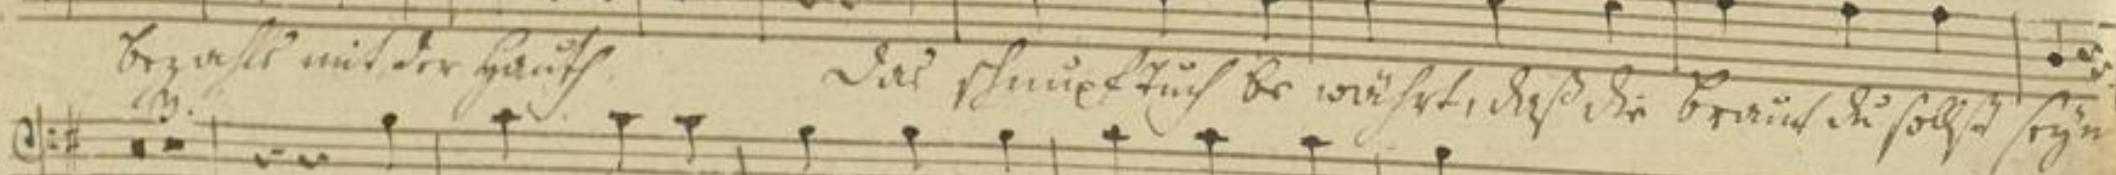 bezahls mit der Hauth. Das schnupftuch be währt, daß die braut du sollst seyn
3.